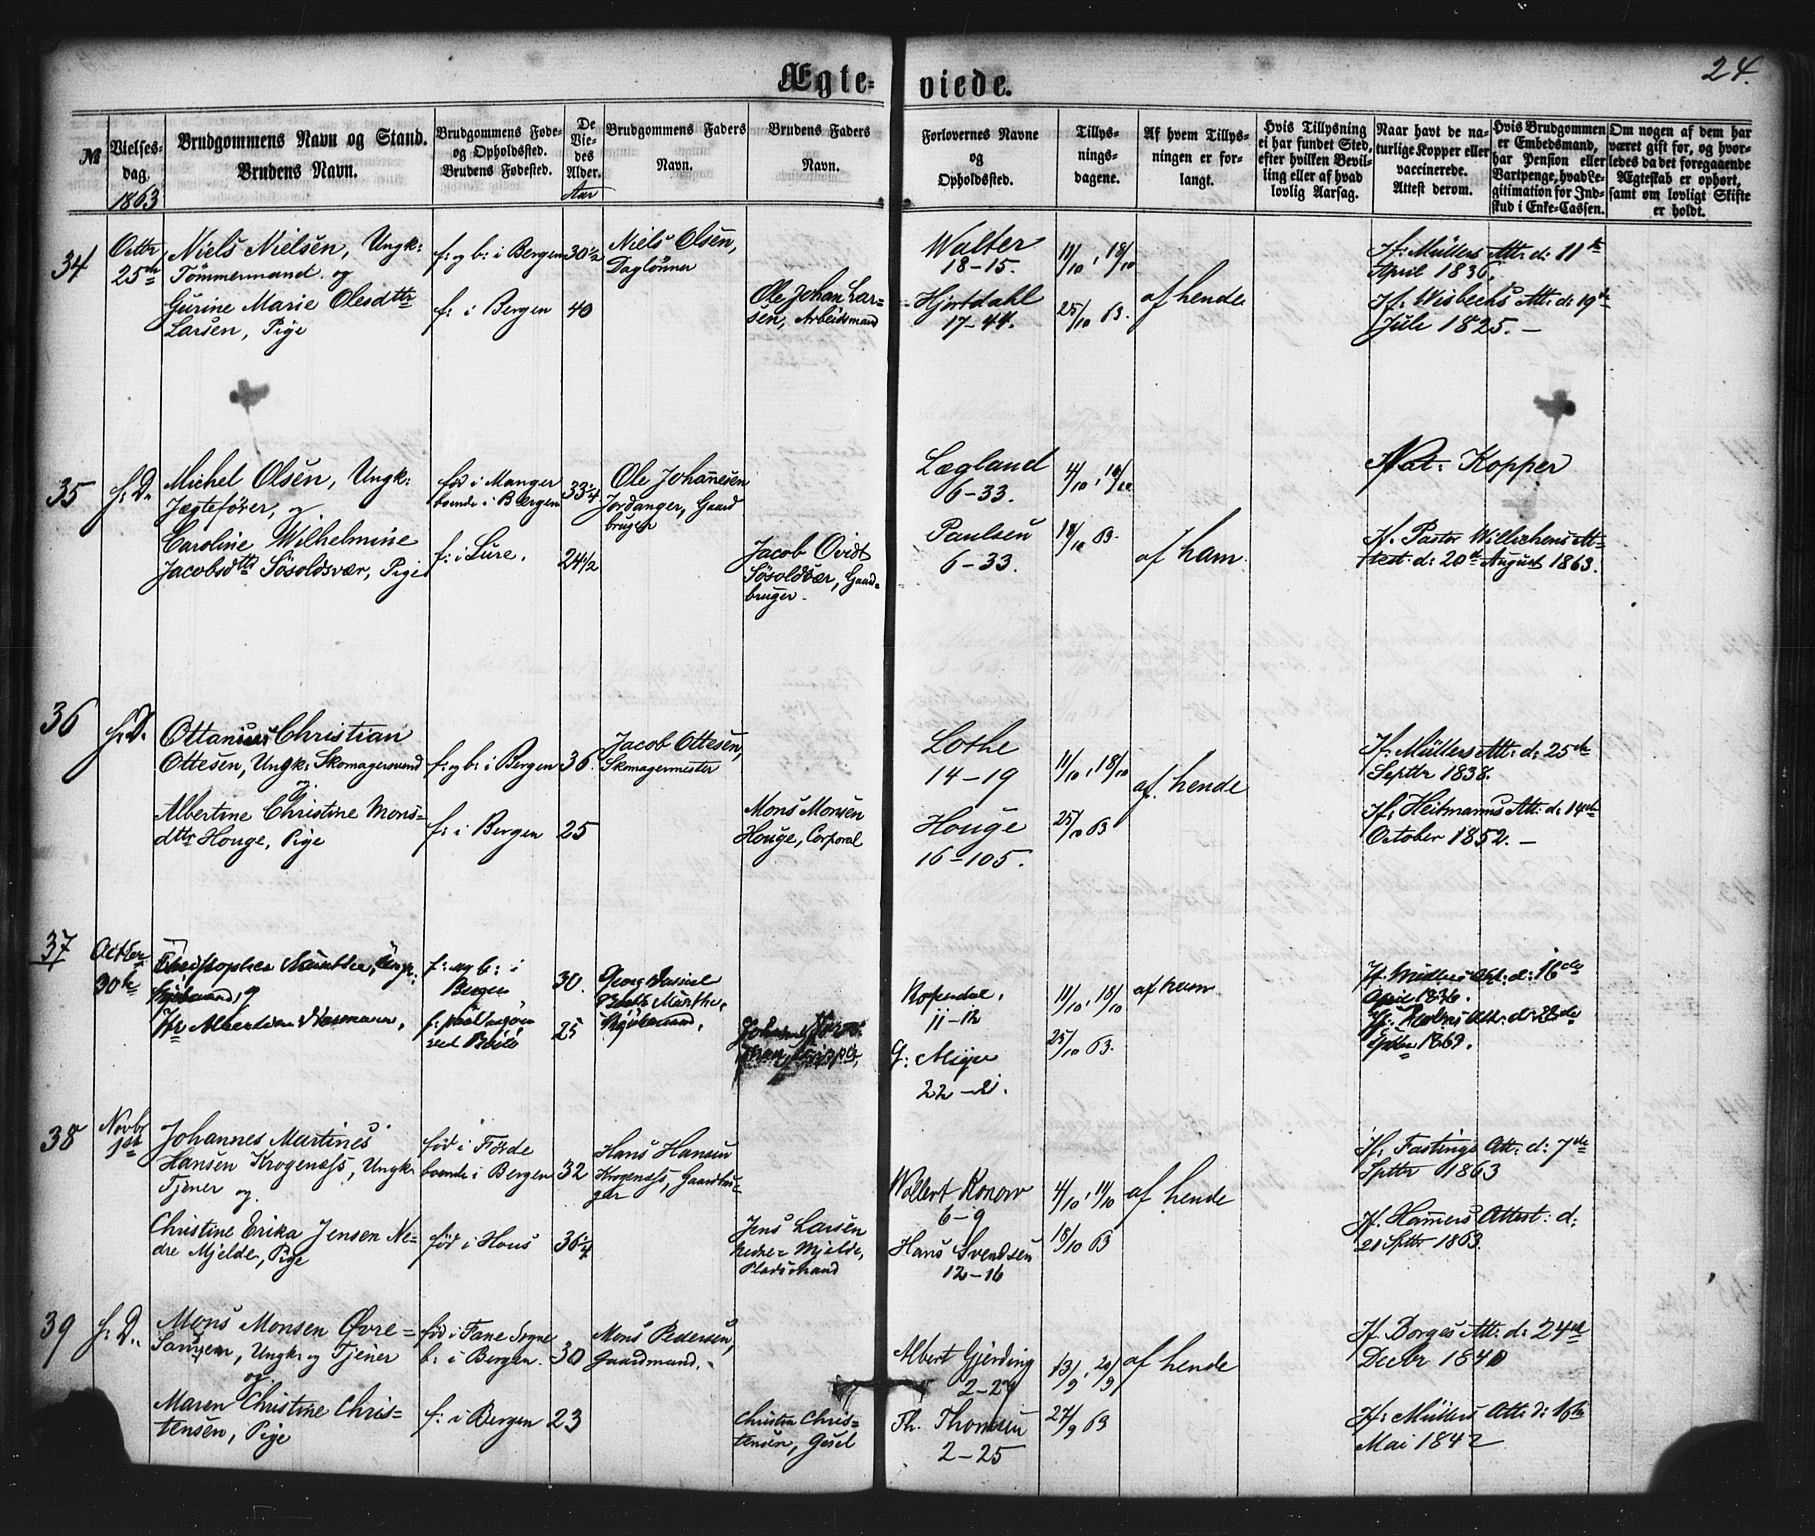 24.
Ægte-
viede.
№
Vielses-
dag.
1863
Brudgommens Navn og Stand.
Brudens Navn.
Brudgommens Føde-
og Opholdssted.
Brudens Fødested.
De
Vie-
des
Alder.
Aar
Brudgommens Faders
Navn.
Brudens Faders
Navn.
Forlovernes Navne
og
Opholdssted.
Tillys-
nings-
dagene.
Af hvem Tillys-
ningen er for-
langt.
Hvis Tillysning
ei har fundet Sted,
efter hvilken Bevil-
ling eller af hvad
lovlig Aarsag.
Naar havt de na-
turlige Kopper eller
vaccinerede.
Attest derom.
Hvis Brudgommen
er Embedsmand,
har Pension eller
Vartpenge, hvad Le-
gitimation for Ind-
skud i Enke-Cassen.
Om nogen af dem har
været gift før, og hvor-
ledes da det foregaaende
Ægteskab er ophørt,
samt om lovligt Skifte
er holdt.
34
Octbr
25de
Niels Nielsen, Ungk:
Tømmermand og
Gurine Marie Olesdttr
Larsen, Pige
f: og b: i Bergen
f: i Bergen
30 1/2
40
Niels Olsen,
Daglønner
Ole Johan Lar-
sen, Arbeidsmand
Walter
18-15.
Hjortdahl
17-44.
11/10, 18/10
25/10 63.
af hende
If: Müllers Att: d: 11te
April 1836.
If. Wisbechs Att: d: 19de
Juli 1825. -
35
f: D.
Michel Olsen, Ungk:
Jægtefører, og
Caroline Wilhelmine
Jacobsdttr Søsoldsvær, Pige
fød i Manger
boende i Bergen
f: i Lure.
33 1/4
24 1/2
Ole Johanesen
Jordanger, Gaard
bruger
Jacob Qvidt
Søsoldsvær, Gaard-
bruger.
Lægland
6-33.
Paulsen
6-33.
4/10,
18/10 63.
af ham
Nat: Kopper
If. Pastor Willochens At-
test d: 20de August 1863.
36
f: D.
Ottanius Christian
Ottesen, Ungk: Skomagersvend
og
Albertine Christine Mons-
dttr Houge, Pige
f: og b: i Bergen
f: i Bergen
36.
25
Jacob Ottesen,
Skomagermester
Mons Monsen
Houge, Corporal
Lothe
14-19
Houge
16-105.
11/10, 18/10
25/10 63
af hende
If: Müllers Att: d: 25de
Septbr 1838.
If: Heitmanns Att: d: 14de
October 1852. -
37
Octbr
30te
Christopher Munthe, Ungk:
f: og b: i
Bergen
30.
25
11-12
G: Mejer
22-2.
11/10, 18/10
25/10 63.
af ham
If: Müllers Att: d: 16de
April 1836.
1863.
38
Novb
1ste
Johannes Martines
Hansen Krogenæss, Ungk:
Tjener og
Christine Erika Jensen Ne-
dre Mjelde, Pige
fød i Førde
boende i Bergen
fød i Hous
32
36 1/4
Hans Hansen
Krogenæss, Gaardbru-
ger
Jens Larsen
Nedre- Mjelde,
Pladsmand
Wollert Konow
6-9
Hans Svendsen
12-16
4/10, 11/10
18/10 63
af hende
If. Fastings Att: d: 7de
Sptbr 1863
If. Hamers Attest: d:
21 Sptbr 1863.
39
f: D.
Mons Monsen Øvre-
Sanven, Ungk: og Tjener
og
Maren Christine Chris-
tensen, Pige
fød i Fane Sogne
b: i Bergen.
f: i Bergen
30
23
Mons Pedersen,
Gaardmand.
Christen Chris-
tensen, Gesel
Albert Gjerding
2-27
Th. Thomsen
2-25
13/9, 20/9
27/9 63
af hende
If. Borges Att: d: 24de
Decbr 1840
If: Müllers Att: d: 16de
Mai 1842